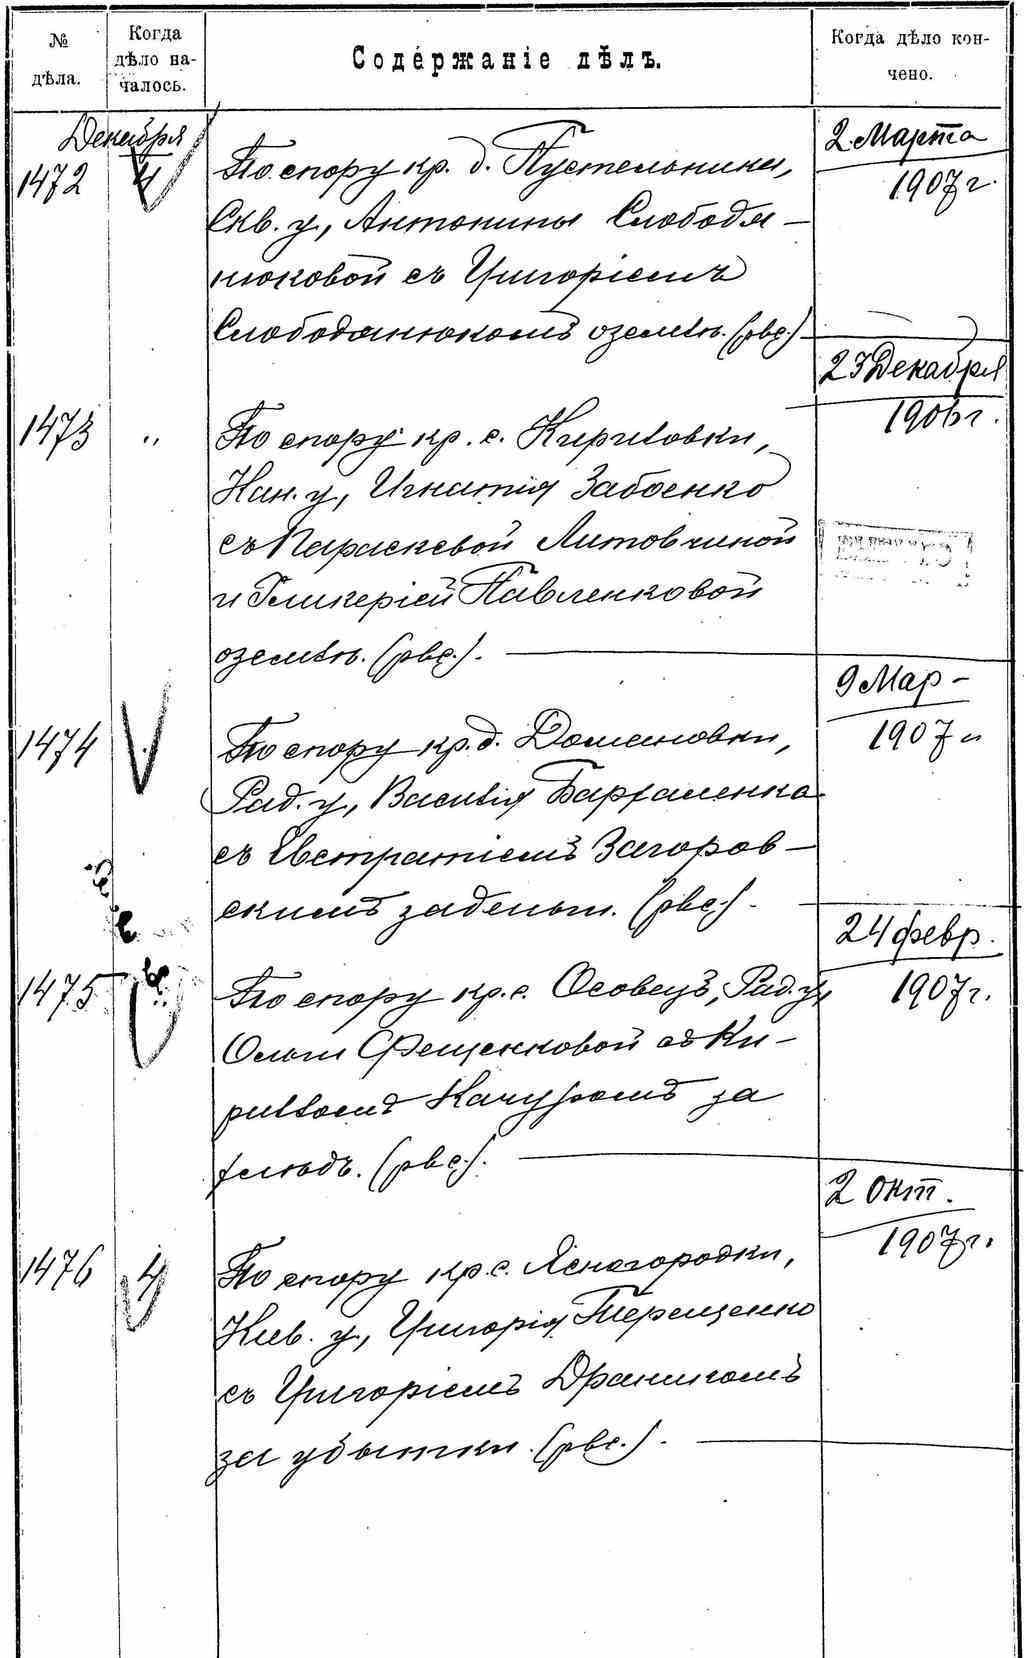 № дѣла.
Когда дѣло на-
чалось.
Содержаніе дѣлъ.
Когда дѣло кон-
чено.
Декабря
1472
4
По спору кр. д. Пустельники,
Скв. у., Антонины Слободя-
нюковой съ Григоріемъ
Слободянюкомъ о землѣ. (рвс.)
2 Марта
1907 г.
1473
"
По спору кр. с. Кириловки,
Кан. у., Игнатія Забоенко
съ Параскевой Литовчиной
и Гликеріей Павленковой
о землѣ. (рвс.).
23 Декабря
1906 г.
1474
По спору кр. д. Домановки,
Рад. у., Василія Вархаменка
съ Евстратіемъ Загоров-
скимъ за деньги. (рвс.).
9 Мар-
1907 г.
1475
По спору кр. с. Осовецъ, Рад. у.,
Ольги Фещенковой съ Ки-
рилломъ Качуромъ за
(рвс.).
24 февр.
1907 г.
1476
4
По спору кр. с. Ясногородки,
Кіев. у., Григорія Терещенко
съ Григоріемъ Драникомъ
за убытки. (рвс.).
2 Окт.
1907 г.